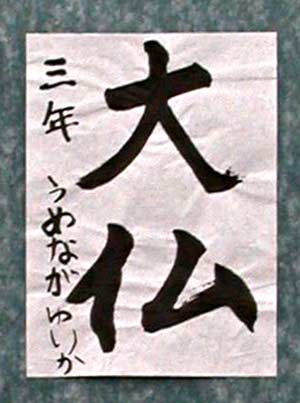 大仏
三年 うめながゆいか